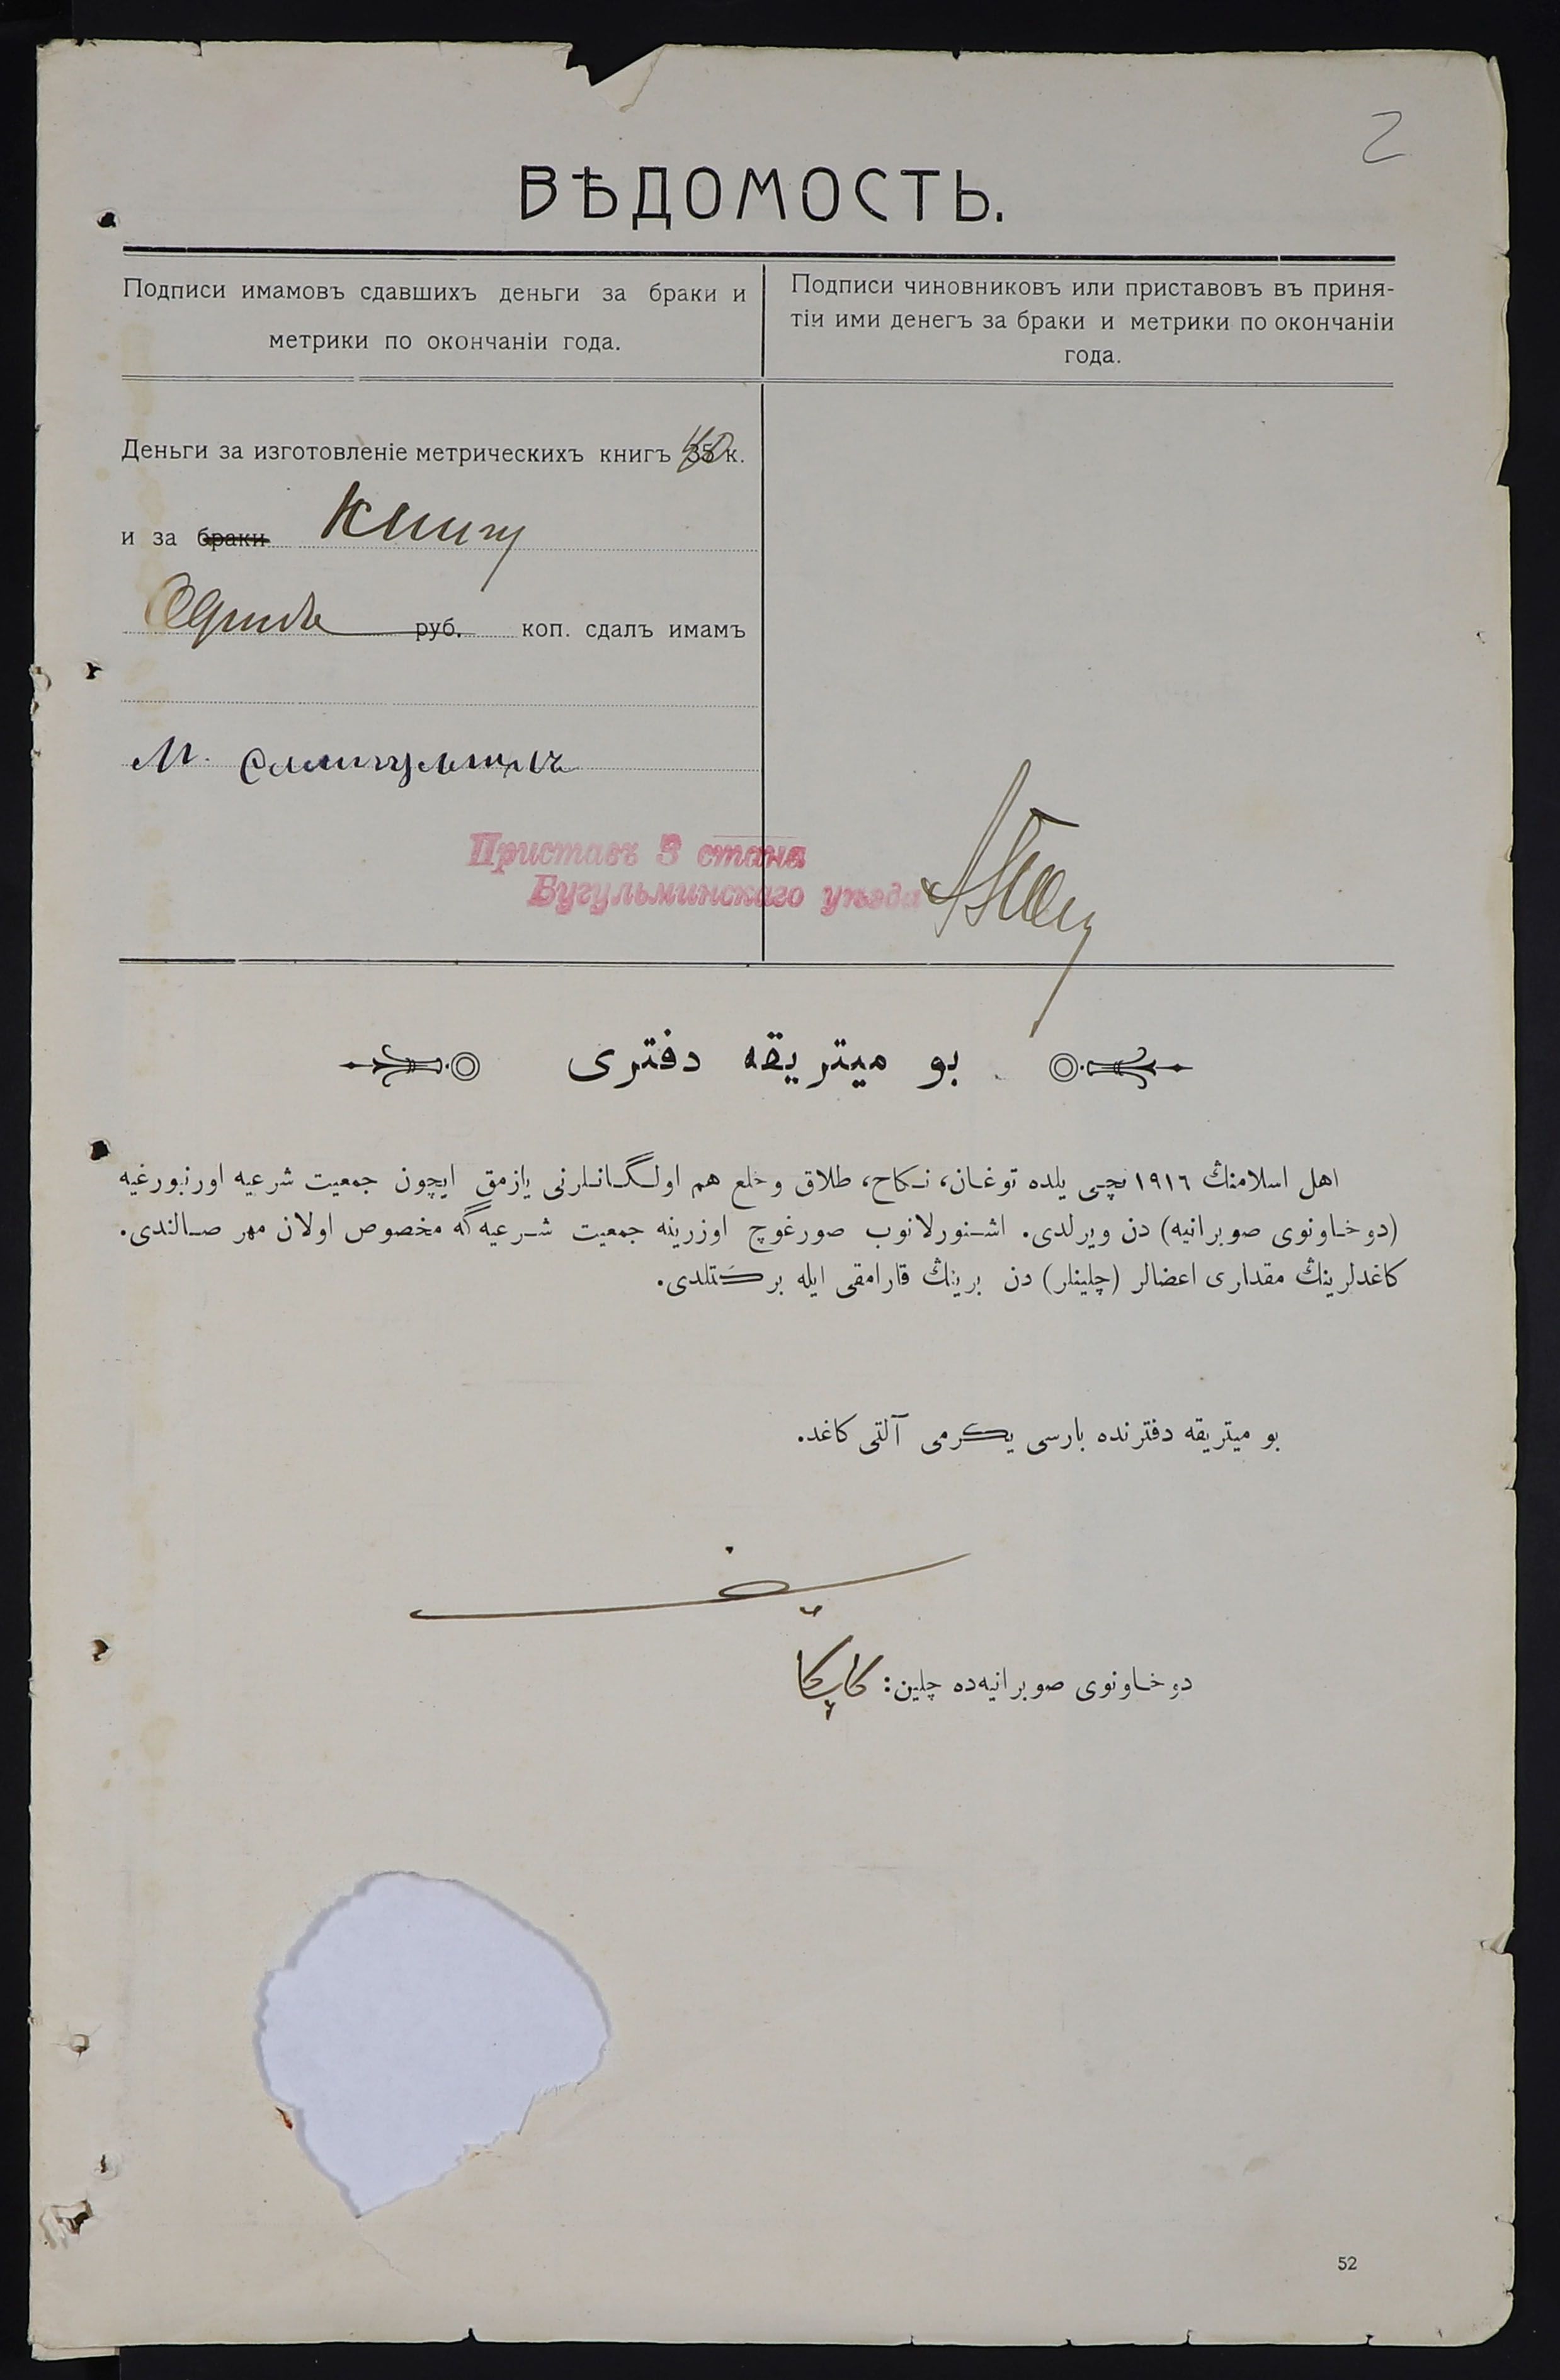 2
ВѢДОМОСТЬ.
Подписи имамовъ сдавшихъ деньги за браки и
метрики по окончаніи года.
Подписи чиновниковъ или приставовъ въ приня-
тіи ими денегъ за браки и метрики по окончаніи
года.
Деньги за изготовленіе метрическихъ книгъ 35 40 к.
и за браки книгу
руб. коп. сдалъ имамъ
М.
Приставъ 3 стана
Бугульминскаго уѣзда
بو ميتريقه دفترى
اهل اسلامنڭ ١٩١٦ نچى يلده توغان، نكاح، طلاق وخلع هم اولگانلرنى يازمق ايچون جمعيت شرعيه اورنبورغيه
(دوخاونوى صوبرانيه) دن ويرلدى. اشنورلانوب صورغوچ اوزرينه جمعيت شرعيه گه مخصوص اولان مهر صالندى.
كاغدلرينڭ مقدارى اعضالر (چلينلر) دن برينڭ قارامقى ايله بركتلدى.
بو ميتريقه دفترنده بارسى يكرمى آلتى كاغد.
دوخاونوى صوبرانيه‌ده چلين:
52